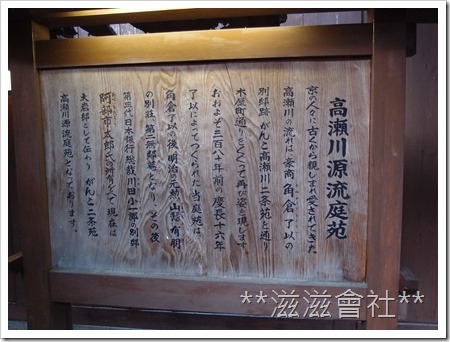 高瀬川源流庭苑
京の人々に古くから親しまれ愛されてきた
高瀬川の流れは豪商角倉了以の
別邸跡がんこ高瀬川二条苑を通り
木屋町通りをくぐって再び姿を現します。
おおよそ三百八十年前の慶長十六年
了以によってつくられた当庭苑は
角倉了以の後、明治の元勲 山縣有朋
の別荘、第二無鄰菴となり、その後
第三代日本銀行総裁川田小一郎の別邸
阿部市太郎氏の所有をへて現在は
大岩邸として伝わり がんこ二条苑
高瀬川源流庭苑となっております。
**滋滋會社**